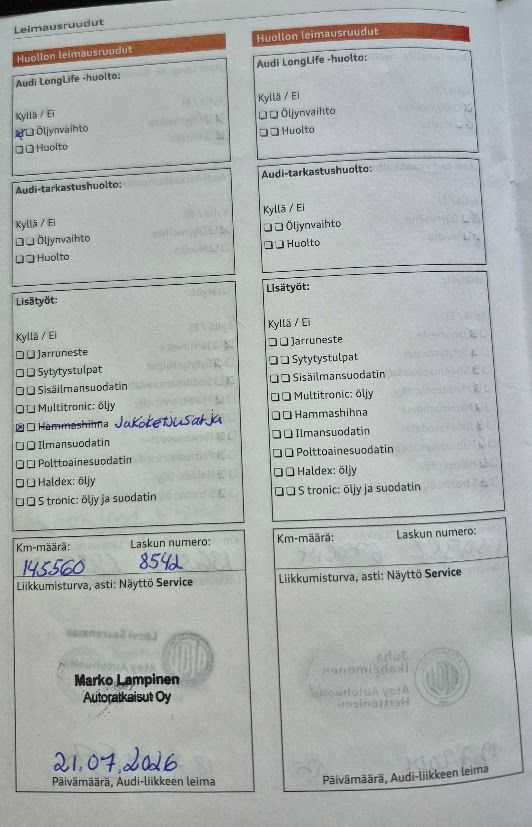 Leimausruudut
Huollon leimausruudut
Audi LongLife -huolto:
Kyllä / Ei
Öljynvaihto
Huolto
Audi-tarkastushuolto:
Kyllä / Ei
Öljynvaihto
Huolto
Lisätyöt:
Kyllä / Ei
Jarruneste
Sytytystulpat
Sisäilmansuodatin
Multitronic: öljy
Hammashihna Jakoketjusarja
Ilmansuodatin
Polttoainesuodatin
Haldex: öljy
S tronic: öljy ja suodatin
Km-määrä: Laskun numero:
145560 8542
Liikkumisturva, asti: Näyttö Service
Marko Lampinen
Autoratkaisut Oy
21.07.2026
Päivämäärä, Audi-liikkeen leima
Huollon leimausruudut
Audi LongLife -huolto:
Kyllä / Ei
Öljynvaihto
Huolto
Audi-tarkastushuolto:
Kyllä / Ei
Öljynvaihto
Huolto
Lisätyöt:
Kyllä / Ei
Jarruneste
Sytytystulpat
Sisäilmansuodatin
Multitronic: öljy
Hammashihna
Ilmansuodatin
Polttoainesuodatin
Haldex: öljy
S tronic: öljy ja suodatin
Km-määrä: Laskun numero:
Liikkumisturva, asti: Näyttö Service
Päivämäärä, Audi-liikkeen leima